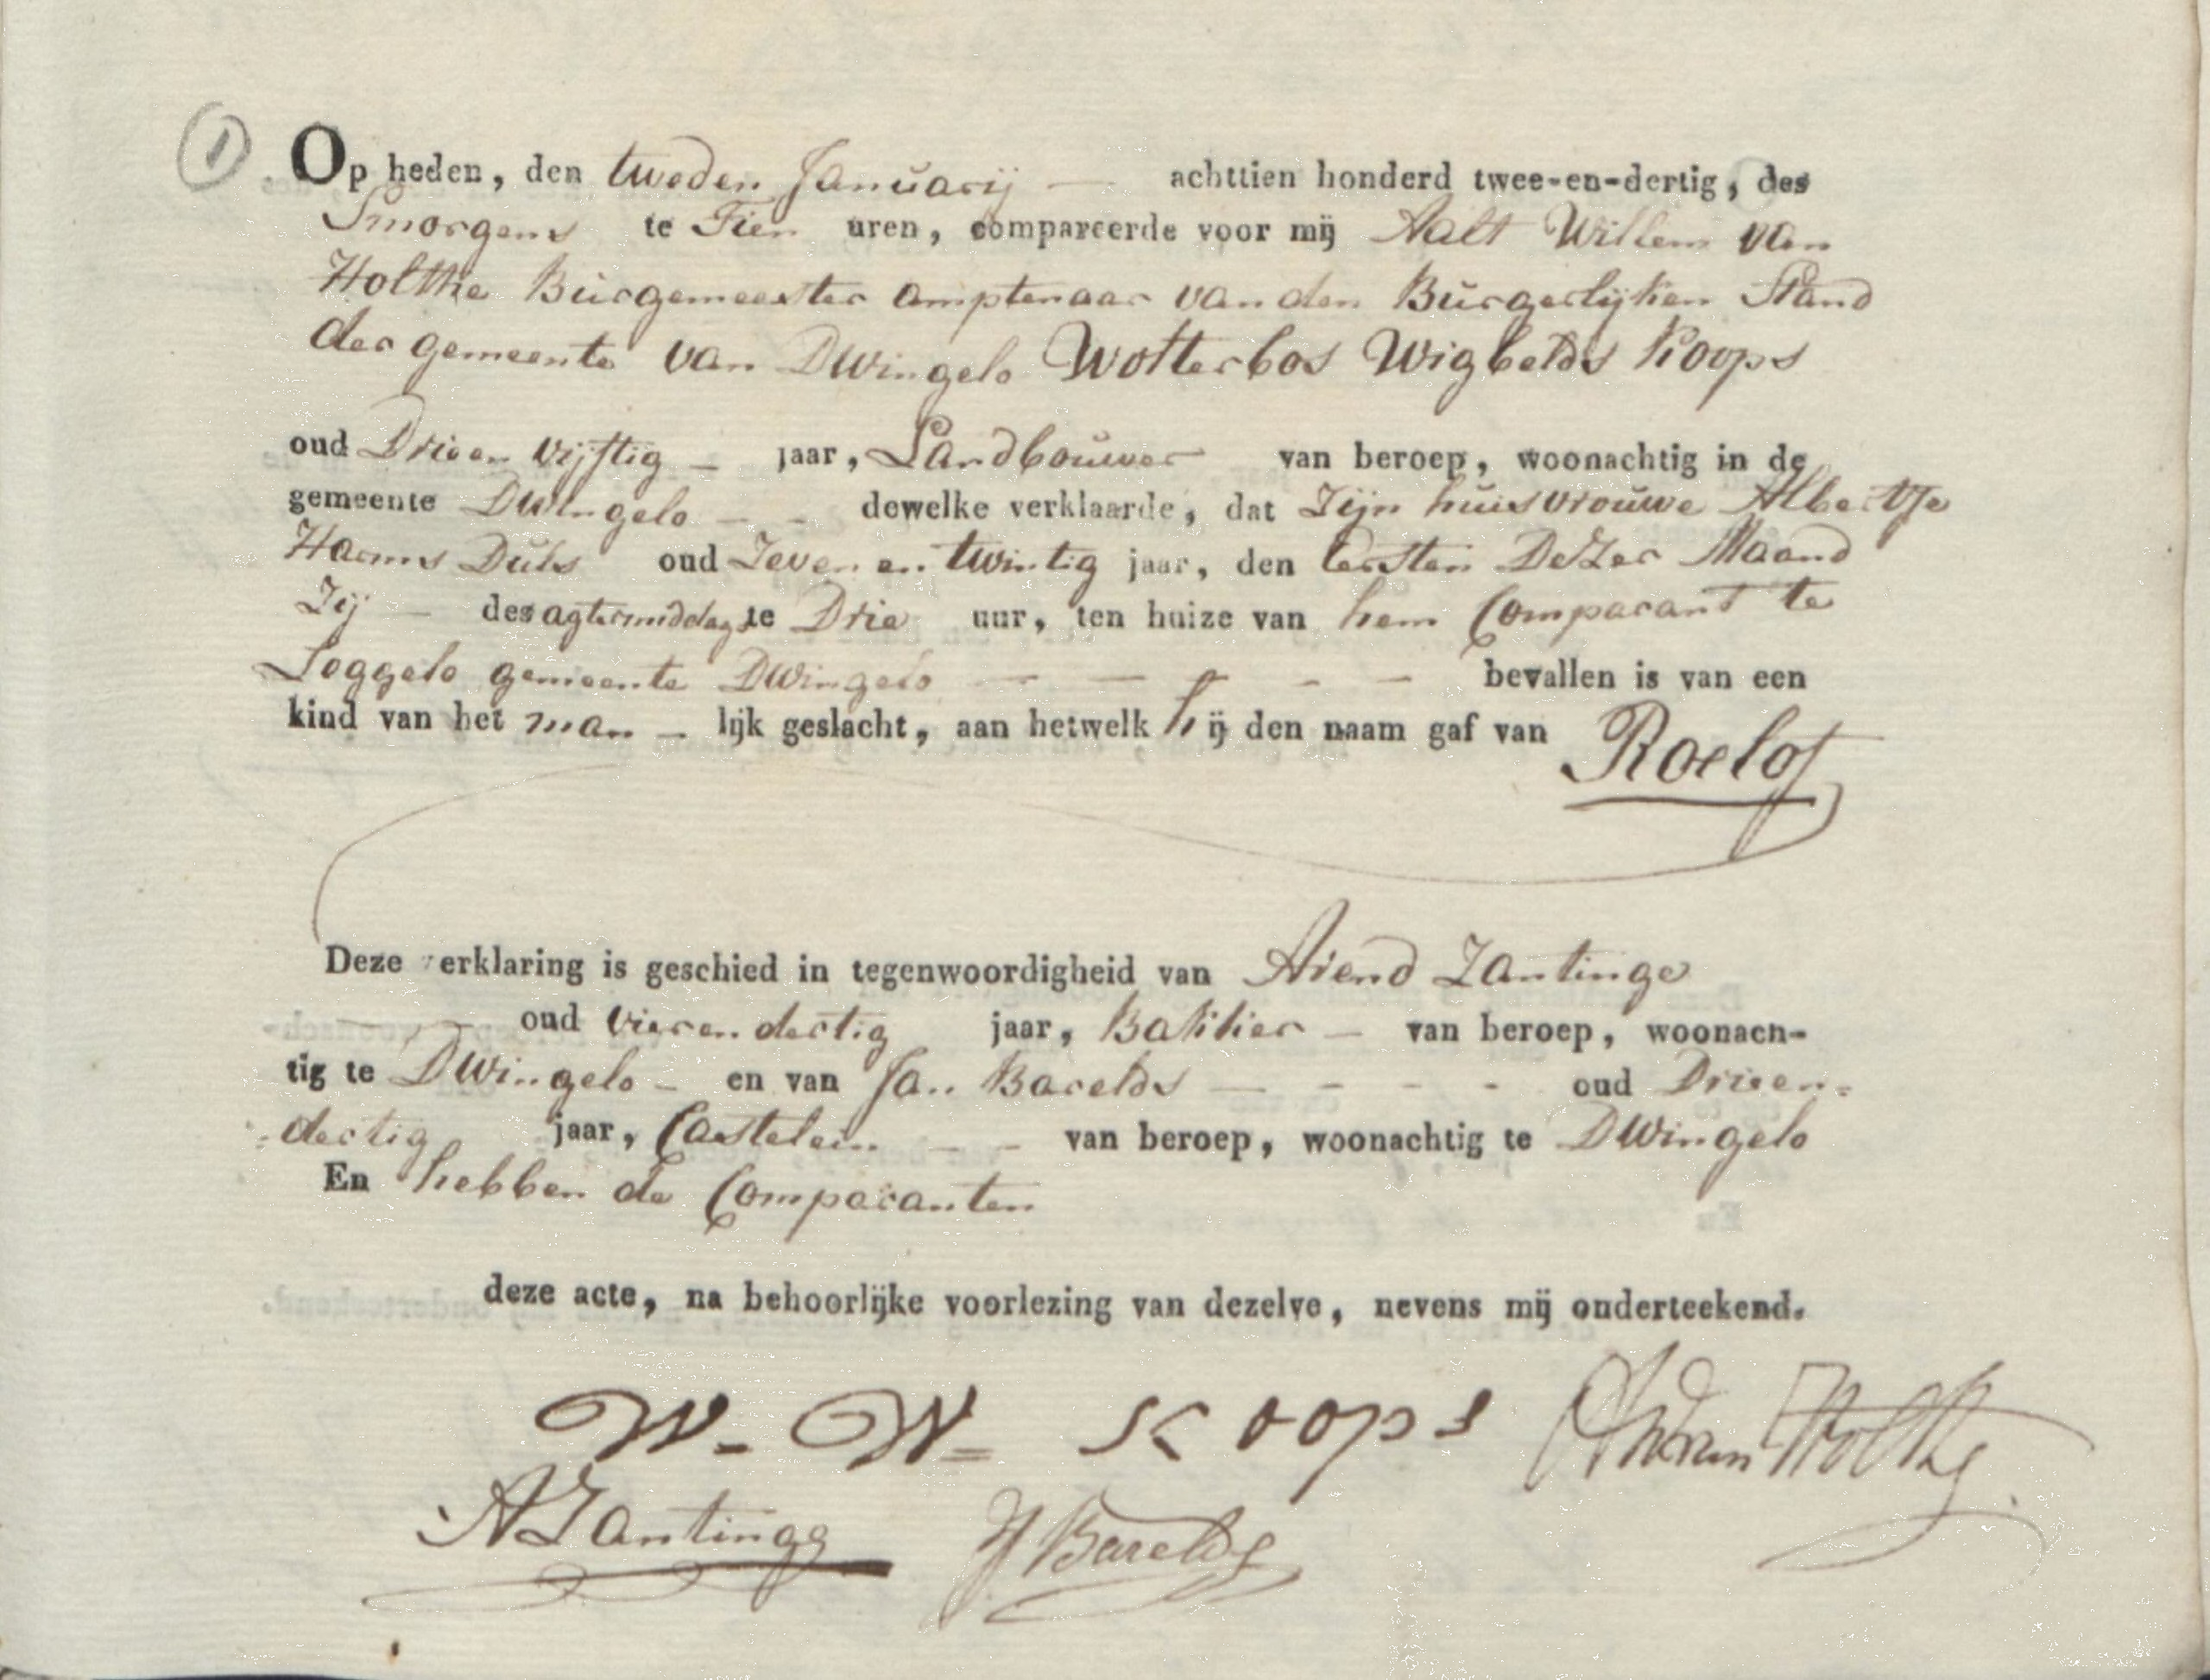 1
Op heden, den tweden Januarij — achttien honderd twee-en-dertig, des
Smorgens te Tien uren, compareerde voor mij Aalt Willem van
Holthe Burgemeester amptenaar van den Burgerlijken Stand
der gemeente van Dwingelo Wolterbos Wigbelds Koops
oud Drie en vijftig — jaar, Landbouwer van beroep, woonachtig in de
gemeente Dwingelo — — dewelke verklaarde, dat Zijn huisvrouwe Albertje
Harms Duls oud Zeven en twintig jaar, den Eersten Dezer Maand
Zij — des agtermiddag te Drie uur, ten huize van hem Comparant te
Leggelo gemeente Dwingelo — — — — — bevallen is van een
kind van het man — lijk geslacht, aan hetwelk hij den naam gaf van Roelof
Deze verklaring is geschied in tegenwoordigheid van Arend Zantinge
— oud vier en dertig jaar, Bakker — van beroep, woonach-
tig te Dwingelo — en van Jan Barelds — — — — oud Drie en-
dertig jaar, Castelein — — van beroep, woonachtig te Dwingelo
En hebben de Comparanten
deze acte, na behoorlijke voorlezing van dezelve, nevens mij onderteekend.
W. W. Koops AW van Holthe
A Zantinge J Barelds